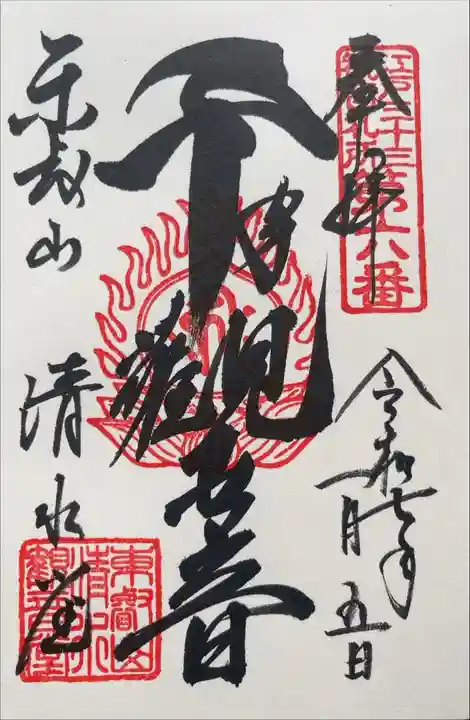 奉拝
第六番
令和七年
一月五日
千手觀世音
東叡山 清水堂
東叡山
清水
觀音堂